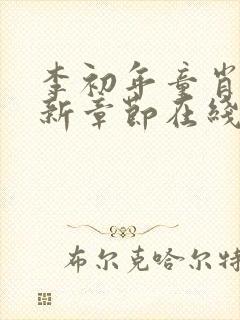 李初年童肖
新章节在线
布尔克哈尔特